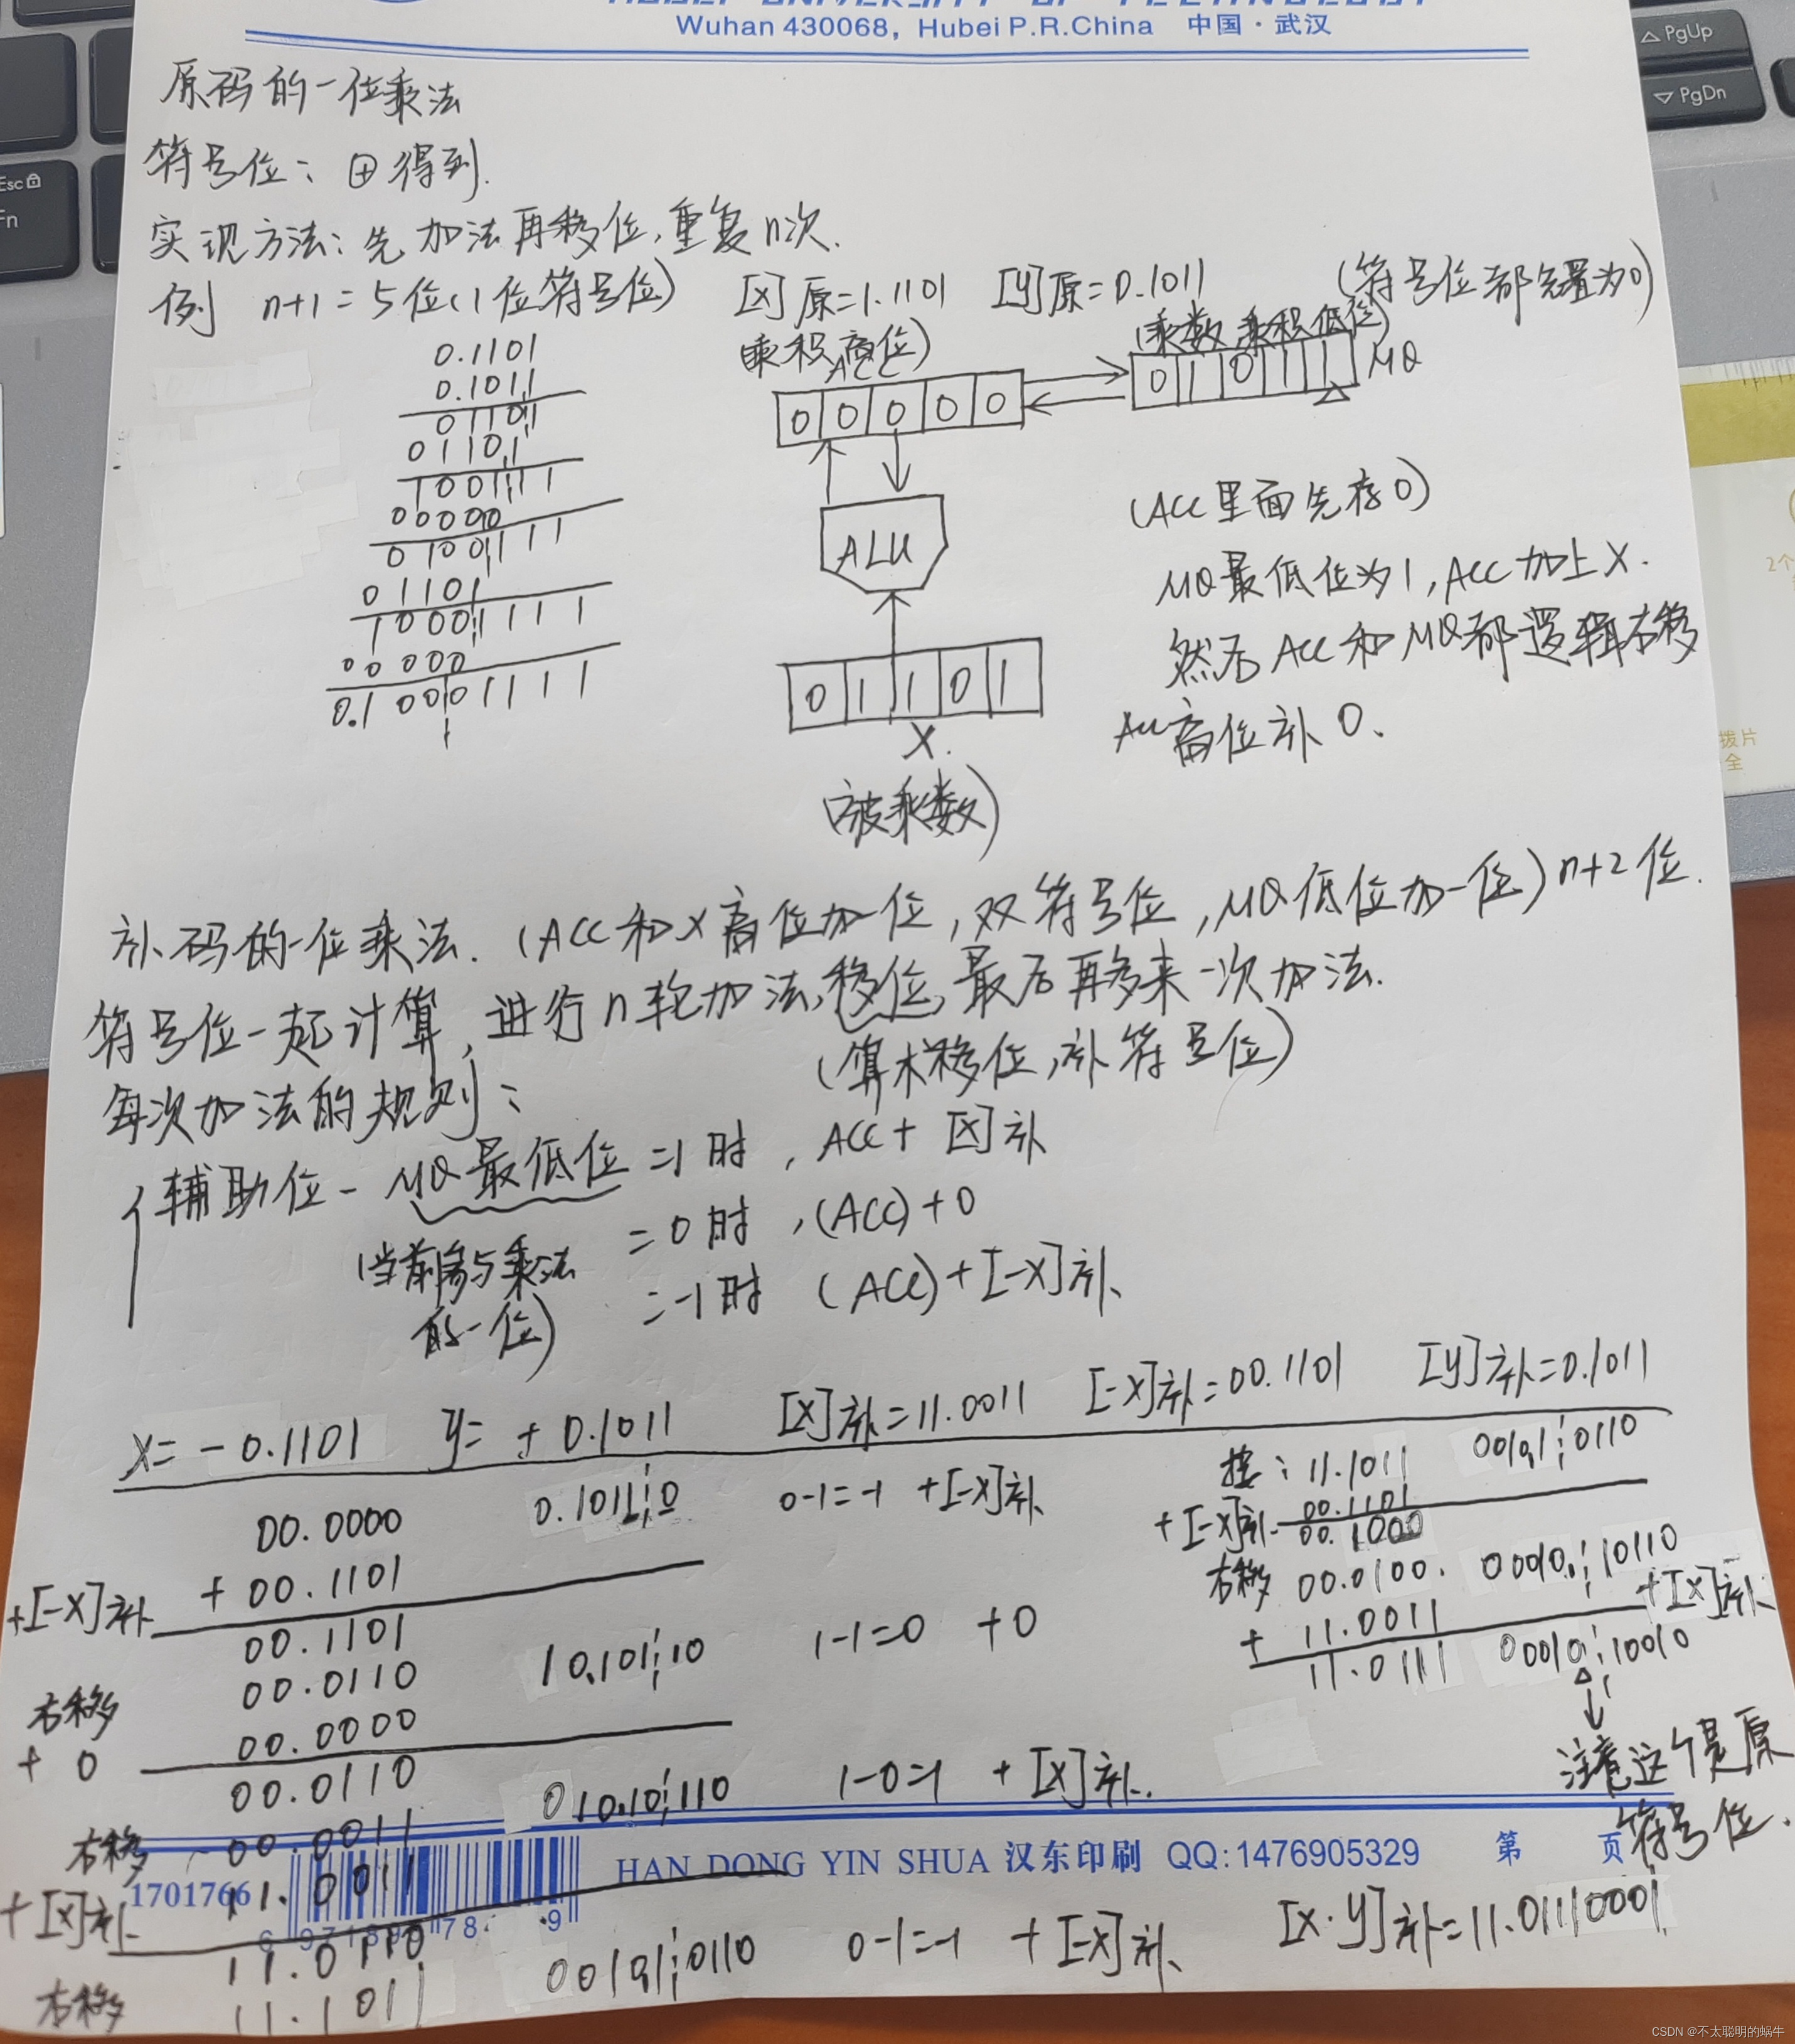 Wuhan 430068, Hubei P.R.China 中国·武汉
PgUp
PgDn
Esc
Fn
原码的一位乘法
符号位:⊕得到.
实现方法:先加法再移位,重复n次.
例 n+1=5位(1位符号位) [X]原=1.1101 [y]原=0.1011 (符号位都先置为0)
0.1101
0.1011
01101
01101
100111
00000
0100111
01101
10001111
00000
0.10001111
(乘积高位)
ACC
0 0 0 0 0
(乘数,乘积低位)
0 1 0 1 1 MQ
ALU
0 1 1 0 1
X.
(被乘数)
(ACC里面先存0)
MQ最低位为1,ACC加上X.
然后ACC和MQ都逻辑右移
ACC高位补0.
补码的一位乘法.(ACC和X高位加一位,双符号位,MQ低位加一位)n+2位.
符号位一起计算,进行n轮加法,移位,最后再多来一次加法.
(算术移位,补符号位)
每次加法的规则:
辅助位-MQ最低位=1时,ACC+[X]补
=0时,(ACC)+0
=-1时 (ACC)+[-X]补
(当前参与乘法
的一位)
X=-0.1101 y=+0.1011 [X]补=11.0011 [-X]补=00.1101 [y]补=0.1011
00.0000 0.1011¦0 0-1=-1 +[-X]补
+[-X]补 +00.1101
00.1101
右移 00.0110 10.101¦10 1-1=0 +0
+0 00.0000
00.0110
右移 00.0011 010.10¦110 1-0=1 +[X]补.
+[X]补 11.0011
11.0110
右移 11.1011 0010.1¦0110 0-1=-1 +[-X]补
接:11.1011 0010.1¦0110
+[-X]补 00.1101
00.1000
右移 00.0100. 00010.¦10110
+[X]补
+ 11.0011
11.0111 00010¦10010
注意这个是原
符号位.
[X·y]补=11.01110001
HAN DONG YIN SHUA 汉东印刷 QQ:1476905329 第 页
1701766
CSDN @不太聪明的蜗牛